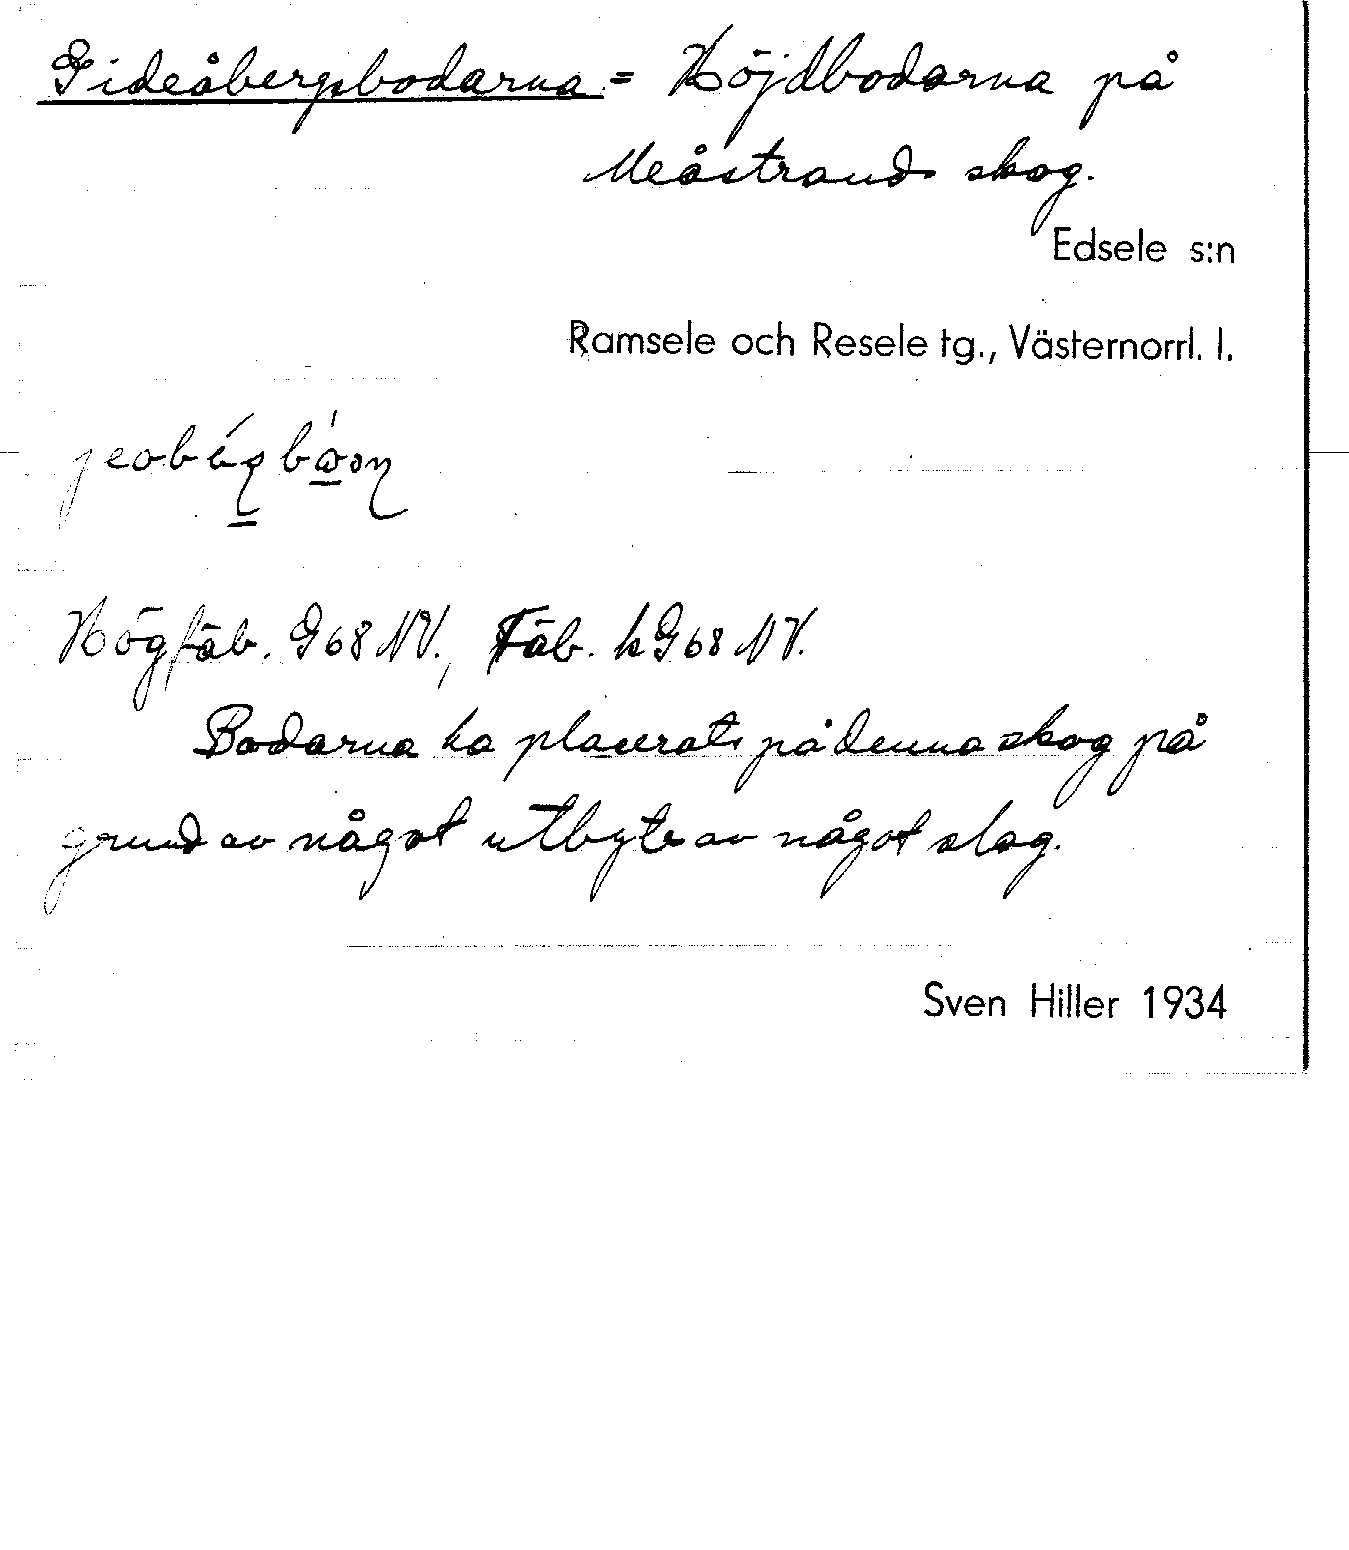 Gideåbergsbodarna = Höjdbodarna på
Meåstrands skog.
Edsele s:n
Ramsele och Resele tg., Västernorrl. l.
Högfäb. G68 NV., Fäb. k G68 NV.
Bodarna ha placerats på denna skog på
grund av något utbyte av något slag.
Sven Hiller 1934